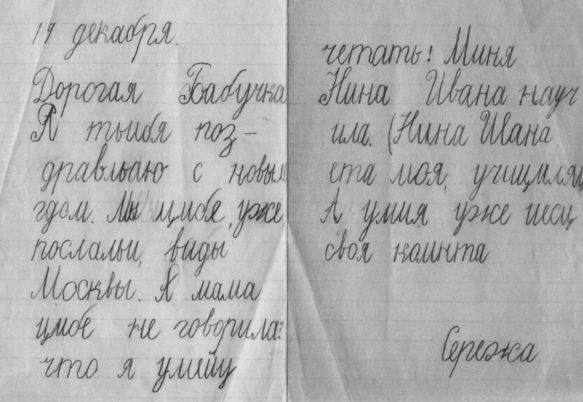 19 декабря.
Дорогая Бабучка
Я тьибя поз-
дравльаю с новым
гдом. Мы цибе уже
послальи, виды
Москвы. А мама
цмбе не говорила:
что я умейу
четать! Миня
Нина Ивана науч
ила. (Нина Ивана
ета моя, учицмлящ
А умия уже иесц
своя комнта
Сережа